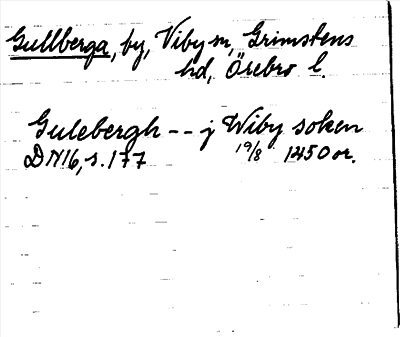 Gullberga, by, Viby sn, Grimstens
hd, Örebro l.
Gulebergh -- j Wiby soken
DN 16, s. 177 19/8 1450 or.